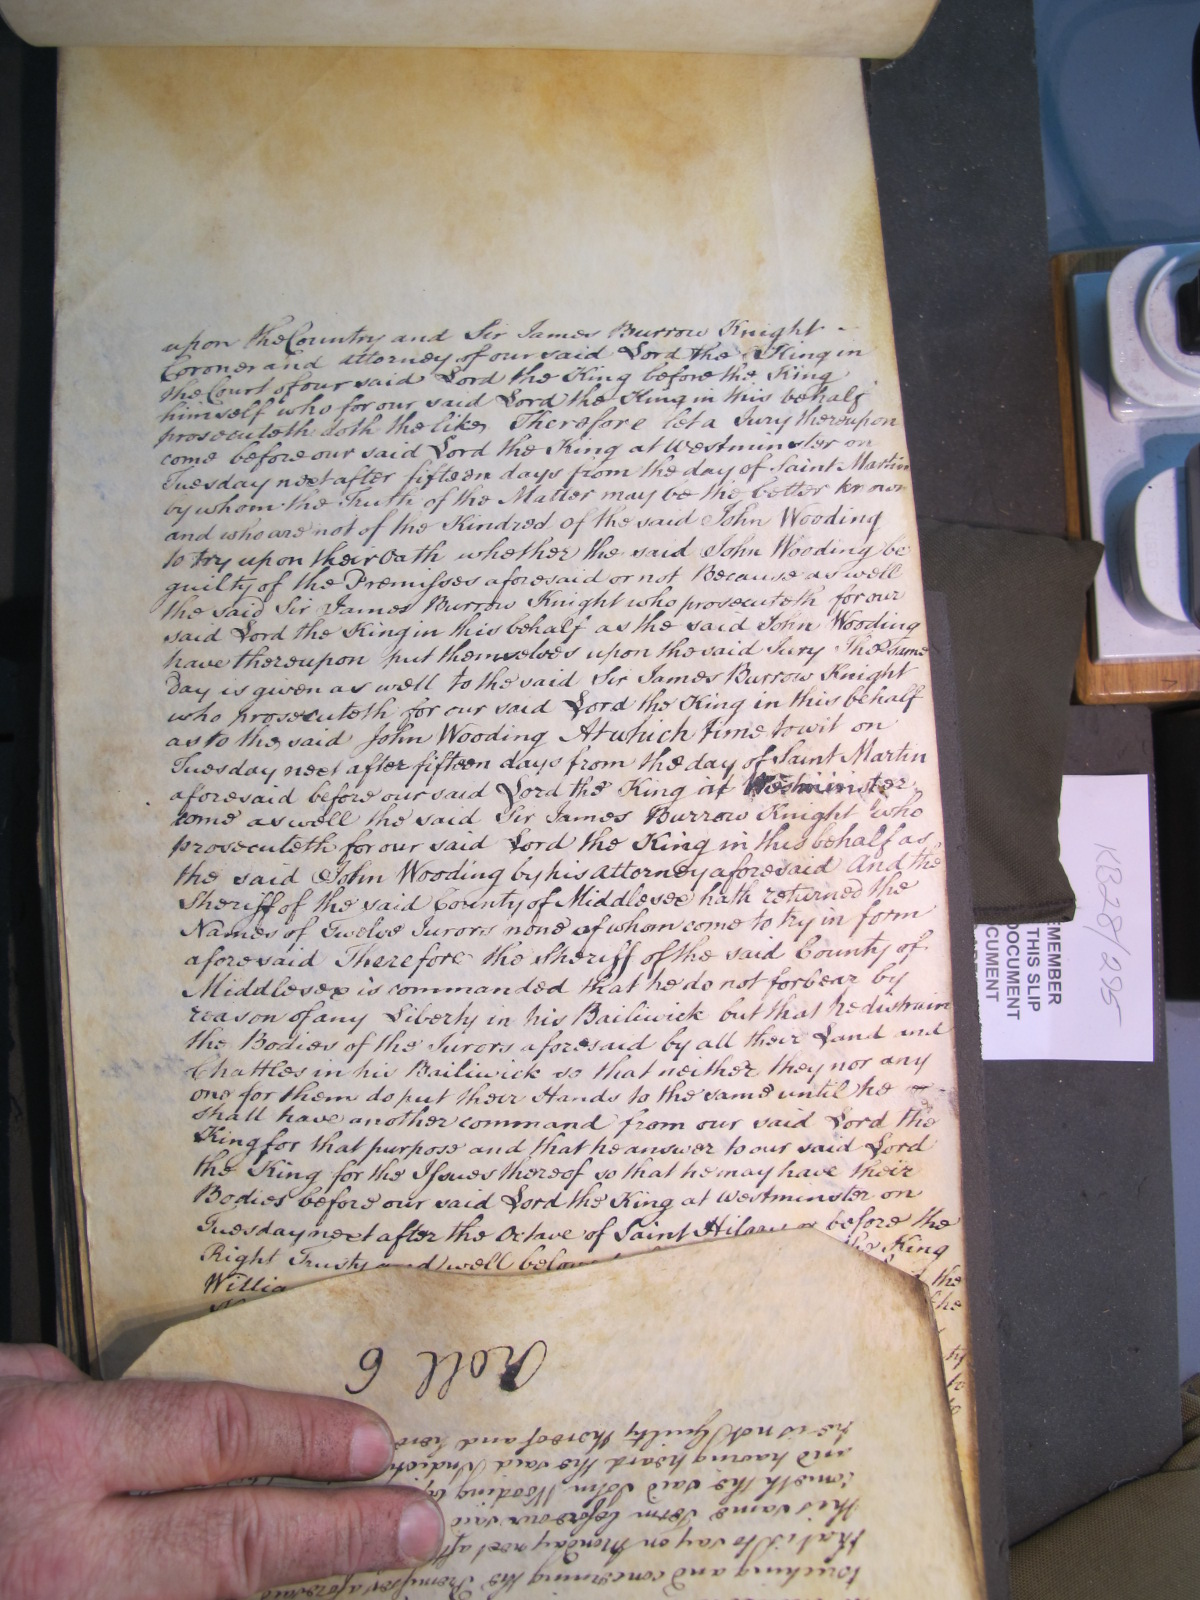 upon the Country and Sir James Burrow Knight
Coroner and attorney of our said Lord the King in
the Court of our said Lord the King before the King
himself who for our said Lord the King in this behalf
prosecuteth doth the like Therefore let a Jury thereupon
come before our said Lord the King at Westminster on
Tuesday next after fifteen days from the day of Saint Martin
by whom the Truth of the Matter may be the better known
and who are not of the Kindred of the said John Wooding
to try upon their Oath whether the said John Wooding be
guilty of the Premisses aforesaid or not Because as well
the said Sir James Burrow Knight who prosecuteth for our
said Lord the King in this behalf as the said John Wooding
have thereupon put themselves upon the said Jury The same
Day is given as well to the said Sir James Burrow Knight
who prosecuteth for our said Lord the King in this behalf
as to the said John Wooding At which time to wit on
Tuesday next after fifteen days from the day of Saint Martin
aforesaid before our said Lord the King at Westminster
come as well the said Sir James Burrow Knight who
prosecuteth for our said Lord the King in this behalf as
the said John Wooding by his attorney aforesaid And the
Sheriff of the said County of Middlesex hath returned the
Names of twelve Jurors none of whom come to try in form
aforesaid Therefore the Sheriff of the said County of
Middlesex is commanded that he do not forbear by
reason of any Liberty in his Bailiwick but that he distrain
the Bodies of the Jurors aforesaid by all their Land and
Chattles in his Bailiwick so that neither they nor any
one for them do put their Hands to the same until he
shall have another command from our said Lord the
King for that purpose and that he answer to our said Lord
the King for the Issues thereof so that he may have their
Bodies before our said Lord the King at Westminster on
Tuesday next after the Octave of Saint Hilary or before the
Right Trusty and well the King
the
the
Roll 6
he is not Guilty thereof and
and having heard the said
cometh the said John Wooding by
this same Term before our said
that is to say on Monday next
touching and concerning the Premisses aforesaid
KB28/295
EMEMBER
THIS SLIP
DOCUMENT
CUMENT